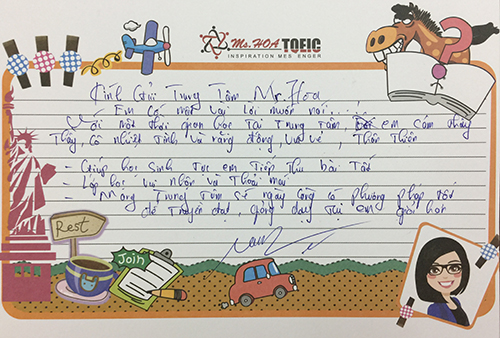 Ms. HOA TOEIC
INSPIRATION MESSENGER
Kính Gửi Trung Tâm Mr. Hoa
Em có một vài lời muốn nói....,
một thời gian học tại Trung tâm, em cảm thấy
Thầy, cô nhiệt tình và năng động, vui vẻ, Thân Thiện
- Giúp học sinh em Tiếp Thu bài Tốt
- Lớp học vui nhộn và Thoải mái
- Mong Trung Tâm sẽ ngày càng có phương pháp tốt
để Truyền đạt, giảng dạy em giỏi hơn
Rest
Join